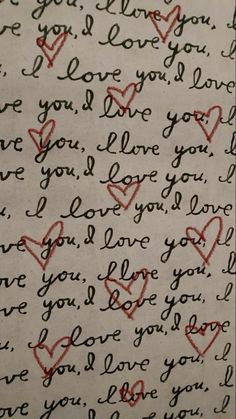 I love you, I
ve you, I love you, I
I love you, I love
ve you, I love you, I
ve you, I love you, I
ve you, I love you, I
I love you, I love
ve you, I love you, I
ve you, I love you, I
ve you, I love you, I
u, I love you, I love
ve you, I love you, I
ve you, I love you, I